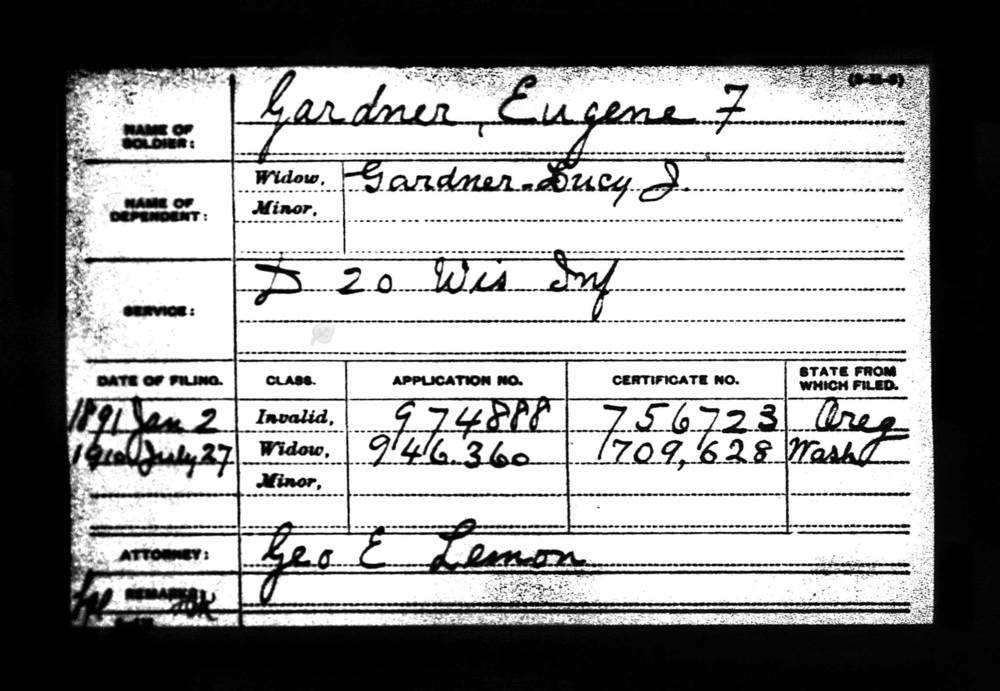 Gardner, Eugene F
NAME OF
SOLDIER:
Widow, Gardner-Lucy J.
Minor,
NAME OF
DEPENDENT:
D 20 Wis Inf
SERVICE:
DATE OF FILING. CLASS. APPLICATION NO. CERTIFICATE NO. STATE FROM
WHICH FILED.
1891 Jan 2 Invalid, 974888 756723 Oreg
1910 July 27 Widow, 946.360 709,628 Wash
Minor,
ATTORNEY: Geo E Lemon
REMARKS: